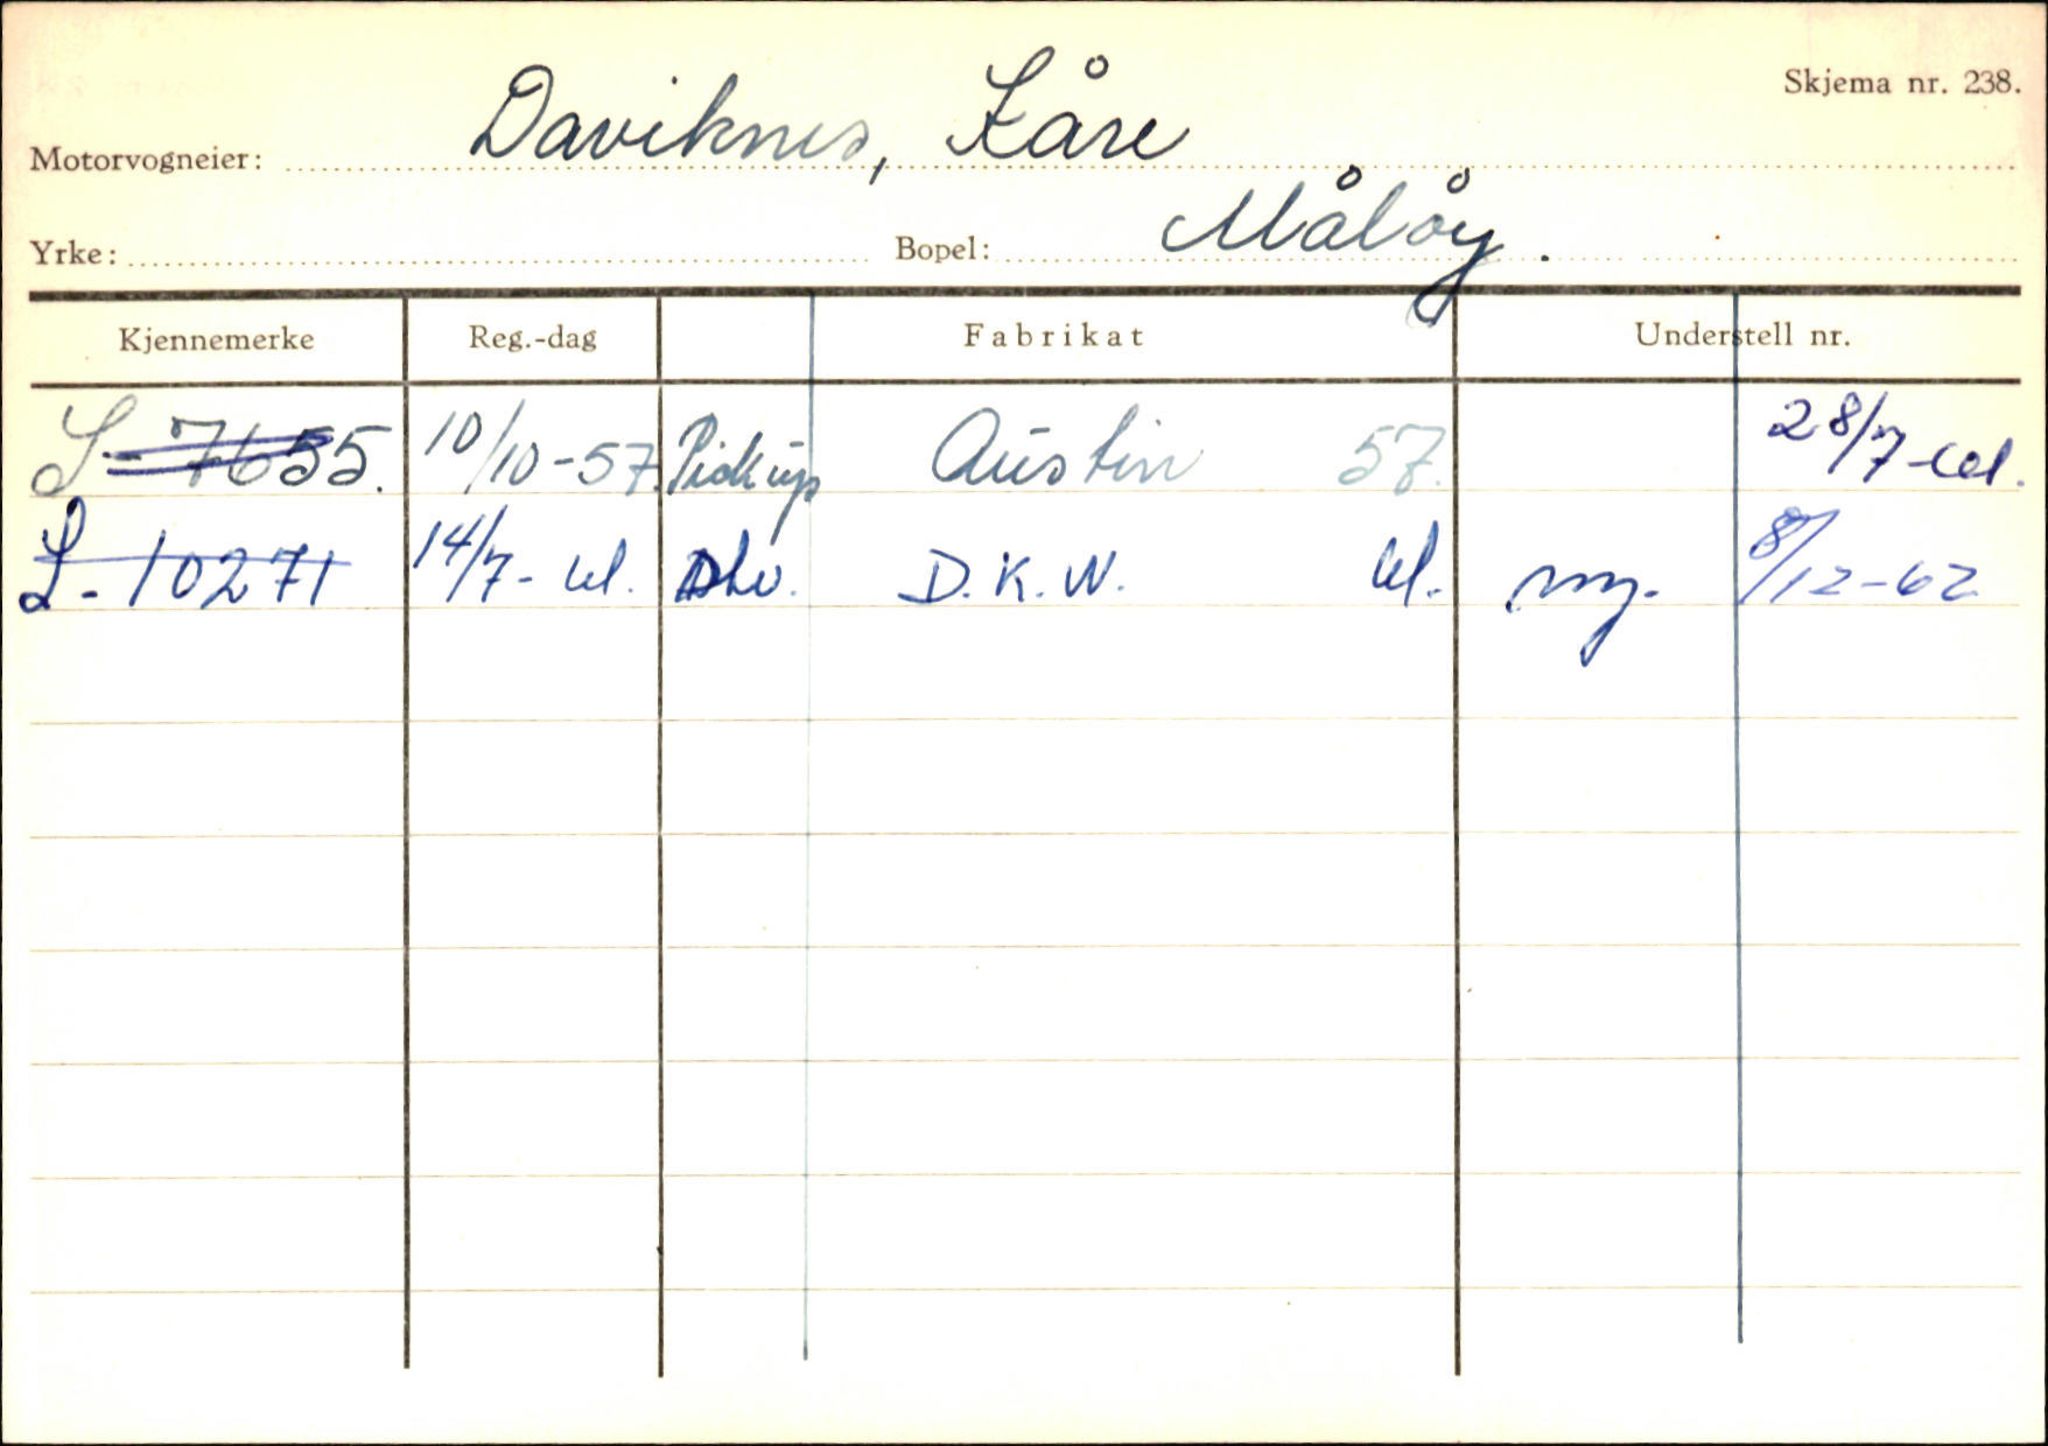 Skjema nr. 238.
Motorvogneier: Daviknes, Kåre
Yrke: Bopel: Måløy.
Kjennemerke Reg.-dag Fabrikat Understell nr.
S-7655. 10/10-57. Pickup Austin 57. 28/7-61.
S-10271 14/7-61. D.K.W. 61. ny. 8/12-62